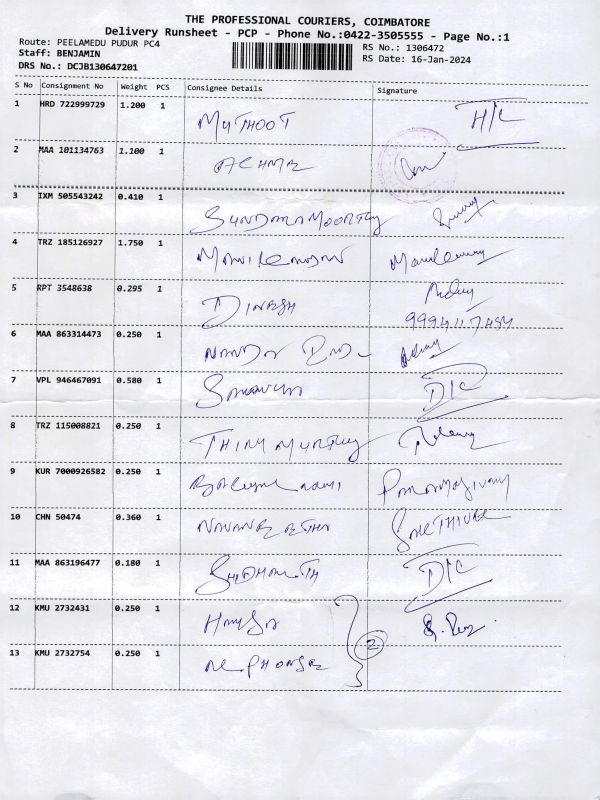 THE PROFESSIONAL COURIERS, COIMBATORE
Delivery Runsheet - PCP - Phone No.:0422-3505555 - Page No.:1
Route: PEELAMEDU PUDUR PC4
RS No.: 1306472
Staff: BENJAMIN
RS Date: 16-Jan-2024
DRS No.: DCJB130647201
S No Consignment No Weight PCS Consignee Details Signature
1 HRD 722999729 1.200 1 MUTHOOT H/C
2 MAA 101134763 1.100 1
3 IXM 505543242 0.410 1 SUNDARAMOORTHY
4 TRZ 185126927 1.750 1 MANIKANDAN
5 RPT 3548638 0.295 1 DINESH
6 MAA 863314473 0.250 1
7 VPL 946467091 0.580 1 D/C
8 TRZ 115008821 0.250 1 THIRUMURTHY
9 KUR 7000926582 0.250 1
10 CHN 50474 0.360 1 SAKTHIVEL
11 MAA 863196477 0.180 1 SHIDHARTH D/C
12 KMU 2732431 0.250 1
2
13 KMU 2732754 0.250 1